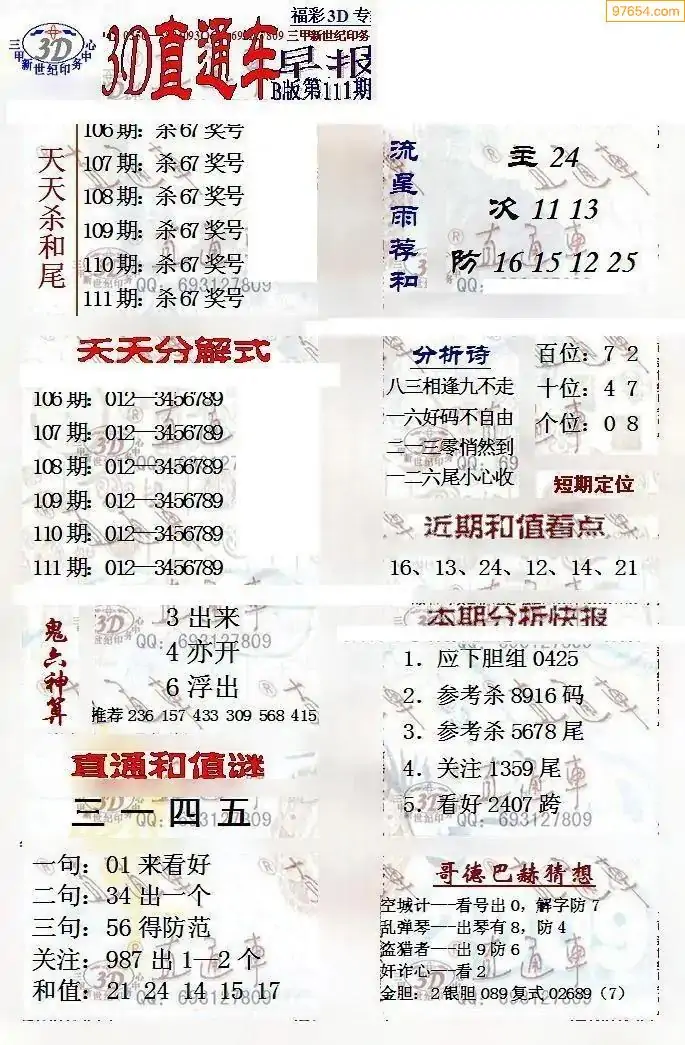 97654.com
福彩3D专
三甲新世纪印务中心
3D
三甲新世纪印务
3D直通车
早报
B版第111期
天天杀和尾
106期：杀67奖号
107期：杀67奖号
108期：杀67奖号
109期：杀67奖号
110期：杀67奖号
111期：杀67奖号
流星雨荐和
主 24
次 11 13
防 16 15 12 25
天天分解式
106期：012—3456789
107期：012—3456789
108期：012—3456789
109期：012—3456789
110期：012—3456789
111期：012—3456789
分析诗
八三相逢九不走
一六好码不自由
二一三零悄然到
一二六尾小心收
百位：7 2
十位：4 7
个位：0 8
短期定位
近期和值看点
16、13、24、12、14、21
鬼六神算
3出来
4亦开
6浮出
推荐 236 157 433 309 568 415
本期分析快报
1．应下胆组0425
2．参考杀8916码
3．参考杀5678尾
4．关注1359尾
5．看好2407跨
直通和值谜
三一四五
一句：01来看好
二句：34出一个
三句：56得防范
关注：987出1—2个
和值：21 24 14 15 17
哥德巴赫猜想
空城计---看号出0，解字防7
乱弹琴---出琴有8，防4
盗猎者---出9防6
奸诈心---看2
金胆：2银胆089复式02689（7）
QQ：693127809